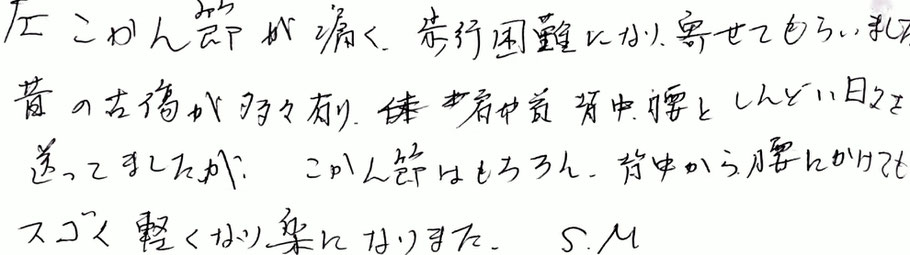 左こかん節が痛く、歩行困難になり、寄せてもらいました
昔の古傷が多々有り、体 肩 首 背中、腰としんどい日々を
送ってましたが、こかん節はもちろん、背中から腰にかけても
スゴく軽くなり楽になりました。 S.M